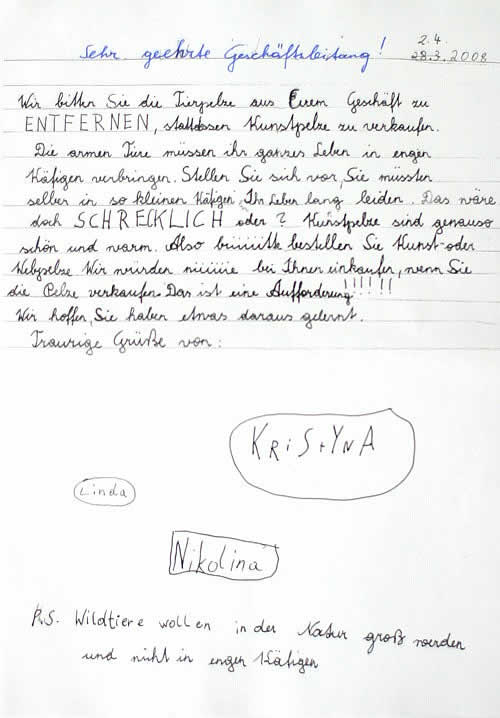 2.4
Sehr geehrte Geschäftsleitung!
28.3.2008
Wir bitten Sie die Tierpelze aus Eurem Geschäft zu
ENTFERNEN, stattdessen Kunstpelze zu verkaufen.
Die armen Tiere müssen ihr ganzes Leben in engen
Käfigen verbringen. Stellen Sie sich vor, Sie müssten
selber in so kleinen Käfigen, Ihr Leben lang leiden. Das wäre
doch SCHRECKLICH oder? Kunstpelze sind genauso
schön und warm. Also büüüütte bestellen Sie Kunst-oder
Webpelze. Wir würden niiiiie bei Ihnen einkaufen, wenn Sie
die Pelze verkaufen. Das ist eine Aufforderung!!!!!!
Wir hoffen, Sie haben etwas daraus gelernt.
Traurige Grüße von:
KRiStYNA
Linda
Nikolina
P.S. Wildtiere wollen in der Natur groß werden
und nicht in engen Käfigen